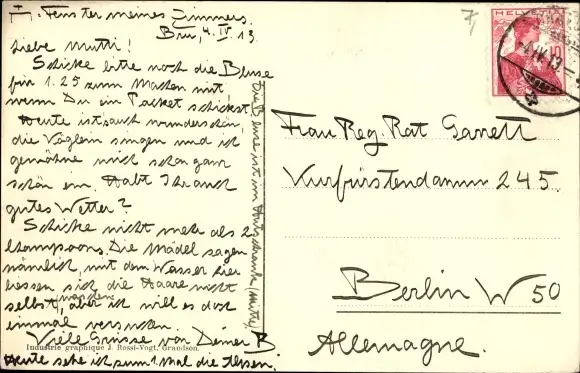 F: Fenster meines Zimmers.
Bru, 4. IV. 13.
Liebe Mutti!
Schicke bitte noch die Bluse
für 1.25 zum Machen mit,
wenn Du ein Packet schickst.
Heute ist auch wunderschön,
die Vöglein singen und ich
gewöhne mich schon ganz
schön ein. Habt Ihr auch
gutes Wetter?
Schicke nicht mehr als 2
Shampoons. Die Mädel sagen
nämlich, mit dem Wasser hier
liessen sich die Haare nicht
selbst waschen, aber ich will es doch
einmal versuchen.
Viele Grüsse von Deiner B
Heute sehe ich zum 1. mal die Alpen.
Die Bluse ist im
Industrie graphique J. Rossi-Vogt, Grandson.
7,
HELVETIA
10
4 IV 13
Frau Reg. Rat Garrett
Kurfürstendamm 245.
Berlin W 50
Allemagne.